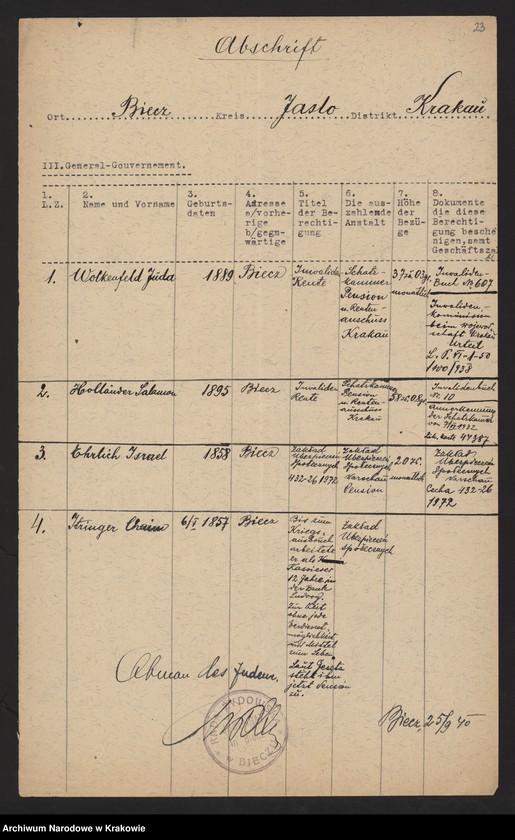 23
Abschrift
Ort Biecz Kreis Jaslo Distrikt Krakau
III.General-Gouvernement.
1. L.Z.
2. Name und Vorname
3. Geburts-
daten
4. Adresse
a/vorhe-
rige
b/gegn-
wärtige
5. Titel
der Be-
rechti-
gung
6. Die aus-
zahlende
Anstalt
7. Höhe
der
Bezü-
ge
8. Dokumente
die diese
Berechti-
gung besche
nigen, samt
Geschäftsza
1. Wolkenfeld Juda 1889 Biecz
Invaliden
Rente
Schatz-
kammer
Pension
u. Renten-
ausschuss
Krakau
37 zł. 03 gr.
monatlich
Invaliden-
Buch № 607
Invaliden-
kommission
beim Wojewod-
schaft Krakau
Urteil
L. P. VI-1-50
/100/938
2. Holländer Salamon 1895 Biecz
Invaliden
Rente
Schatzkammer
Pension
u. Renten-
ausschuss
Krakau
58 zł. 08 gr.
Invalidenbuch
Nr. 10
Anerkennung
der Schatzkammer
44387
3. Ehrlich Israel 1858 Biecz
Zakład
Ubezpieczeń
Społecznych
432-26 1972
Zakład
Ubezpieczeń
Społecznych
Warschau
Pension
20 zł.
monatlich
Zakład
Ubezpieczeń
Społecznych
Warschau
Cecha 432-26
1972
4. Chaim 6/V 1857 Biecz
Bis zum
Kriegs-
ausbruch
arbeitete
er als
Kassierer
12 Jahre in
der Bank
Ludowy.
Zur Zeit
ohne jede
Verdienst-
möglichkeit
und Mittel
zum Leben.
Laut Gesetz
steht ihm
jetzt Pension
zu.
Zakład
Ubezpieczeń
Społecznych
Obman des Judenr.
w BIECZU
Biecz, 25/9 40
Archiwum Narodowe w Krakowie